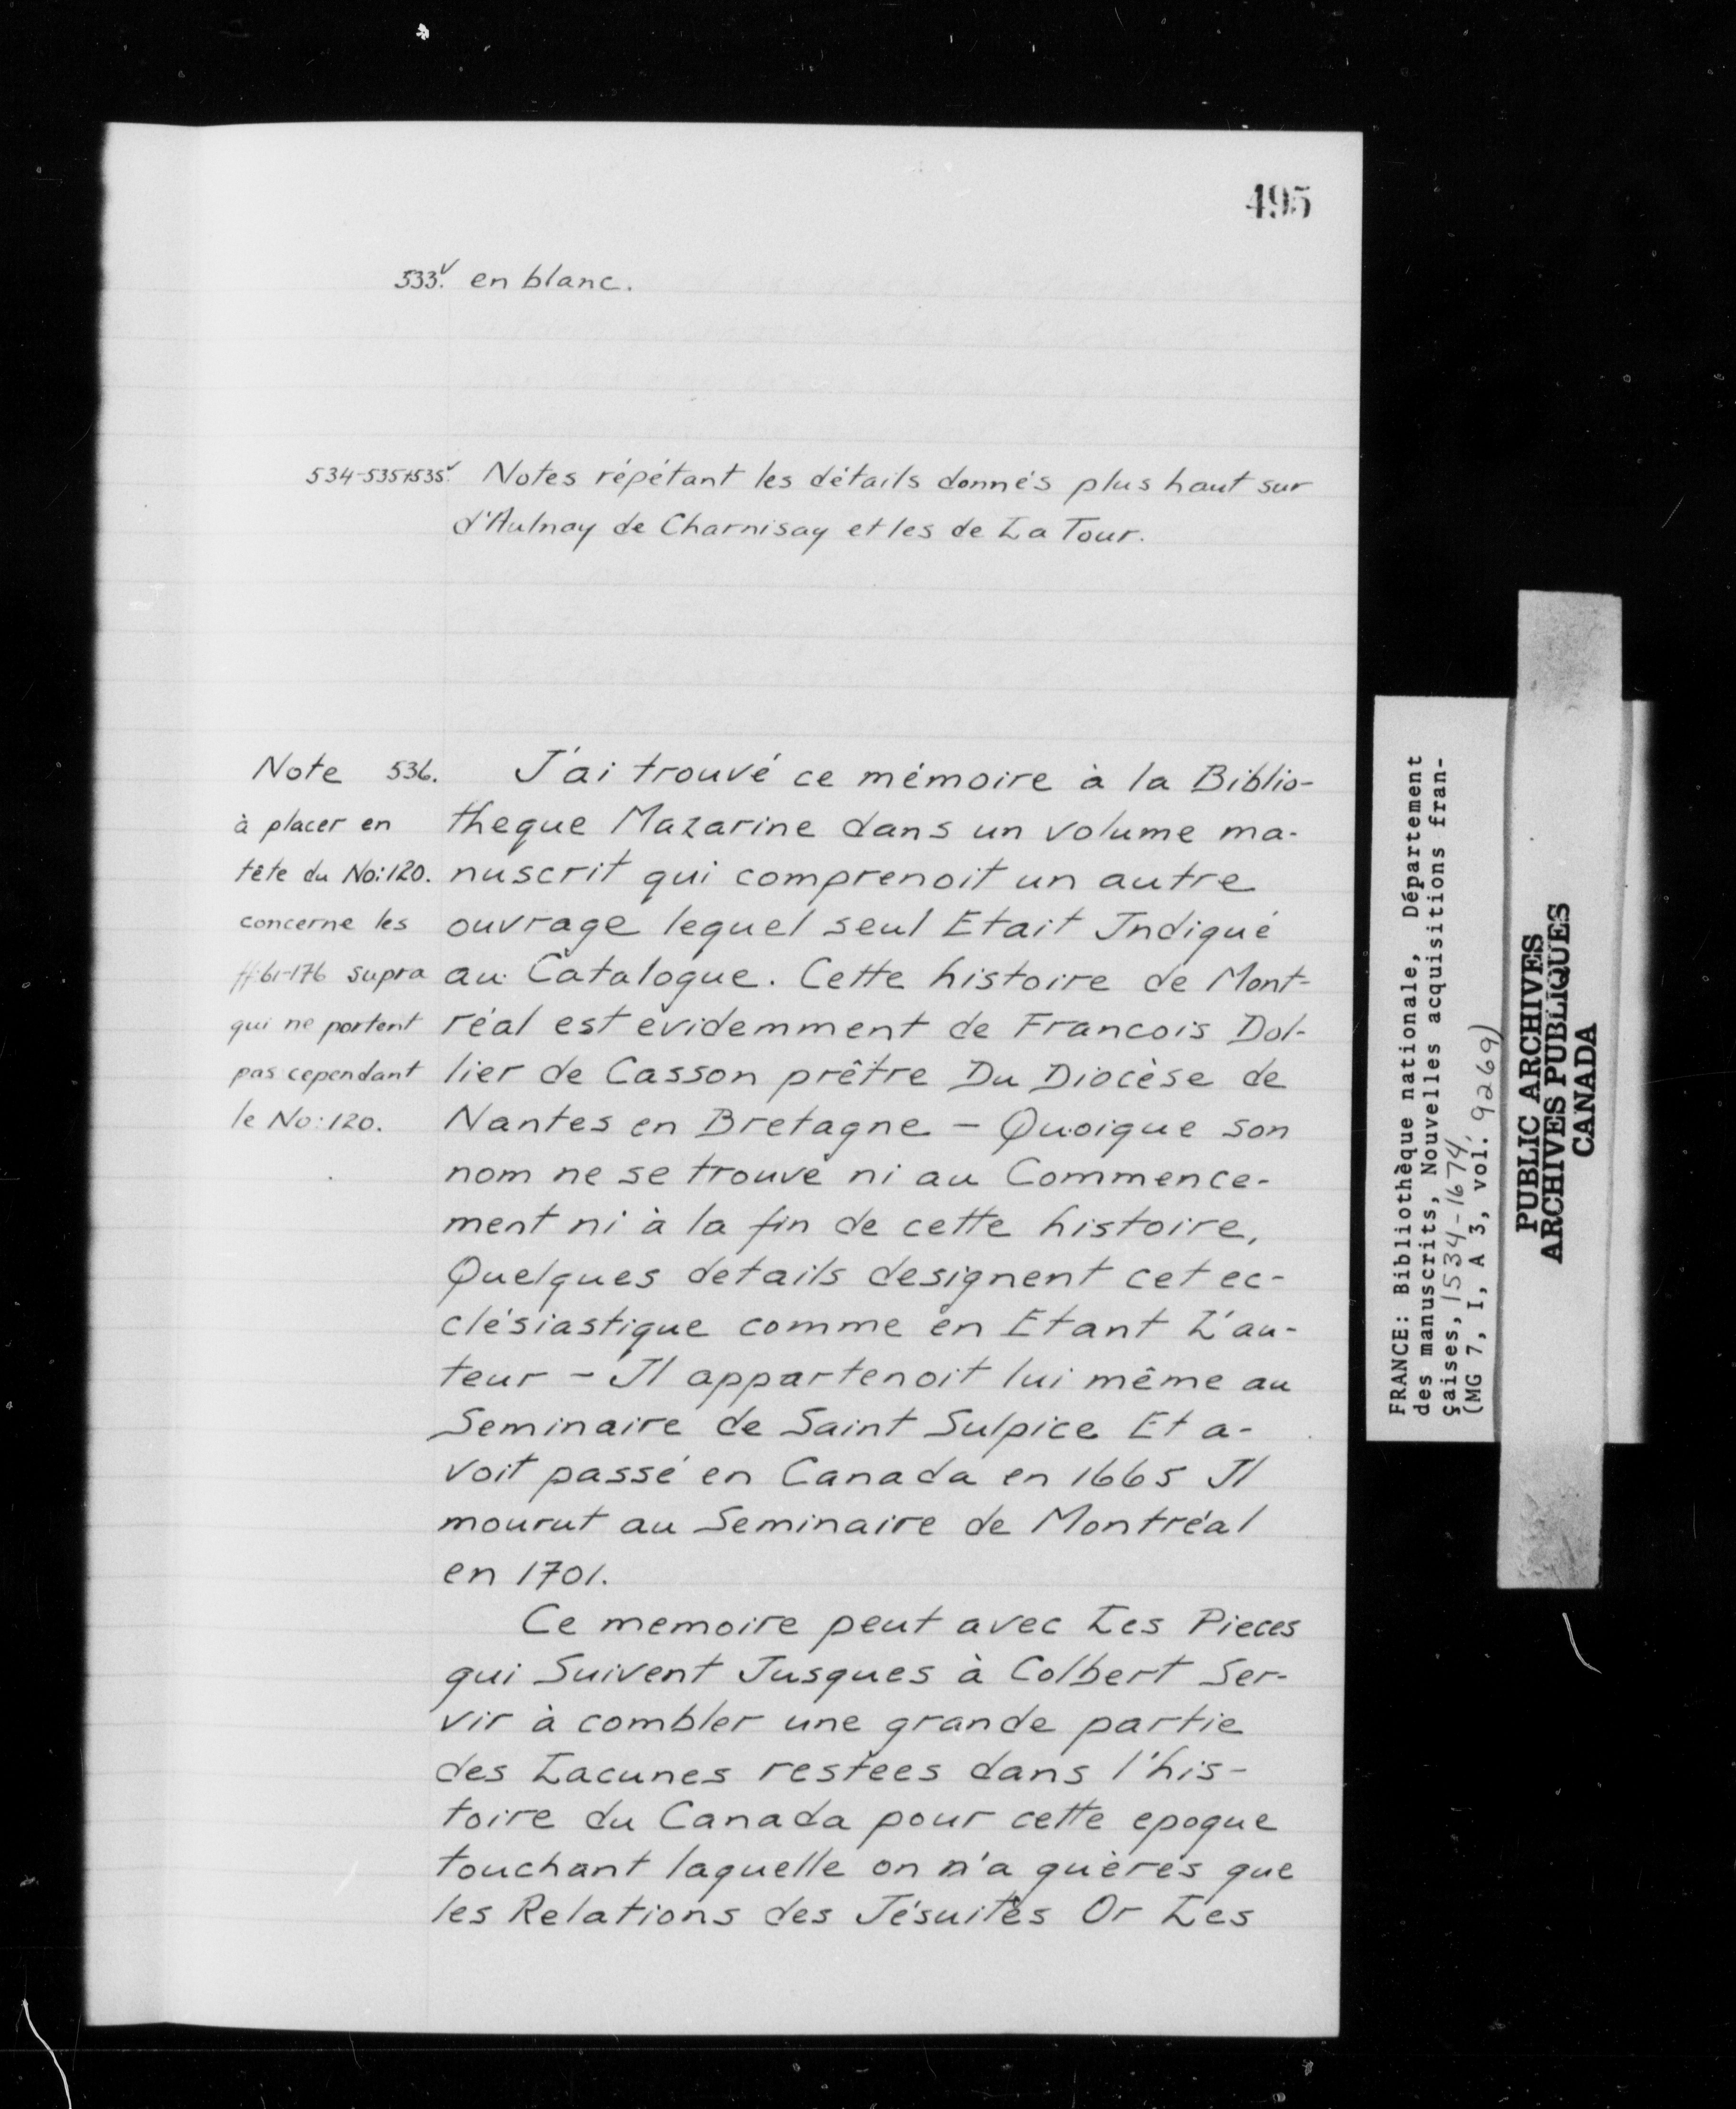 495
533.v en blanc.
534-535+535v. Notes répétant les détails donnés plus haut sur
d'Aulnay de Charnisay et les de La Tour.
Note 536.
à placer en
tête du No: 120.
concerne les
ff. 61-176 supra
qui ne portent
pas cependant
le No: 120.
J'ai trouvé ce mémoire à la Biblio-
theque Mazarine dans un volume ma-
nuscrit qui comprenoit un autre
ouvrage lequel seul Etait Indiqué
au Catalogue. Cette histoire de Mont-
réal est evidemment de Francois Dol-
lier de Casson prêtre Du Diocèse de
Nantes en Bretagne - Quoique son
nom ne se trouve ni au Commence-
ment ni à la fin de cette histoire,
Quelques details designent cet ec-
clésiastique comme en Etant L'au-
teur - Il appartenoit lui même au
Seminaire de Saint Sulpice Et a-
voit passé en Canada en 1665 Il
mourut au Seminaire de Montréal
en 1701.
Ce memoire peut avec Les Pieces
qui Suivent Jusques à Colbert Ser-
vir à combler une grande partie
des Lacunes restées dans l'his-
toire du Canada pour cette epoque
touchant laquelle on n'a guères que
les Relations des Jésuites Or Les
FRANCE: Bibliothèque nationale, Département
des manuscrits, Nouvelles acquisitions fran-
çaises, 1534-1674
(MG 7, I, A 3, vol. 9269)
PUBLIC ARCHIVES
ARCHIVES PUBLIQUES
CANADA